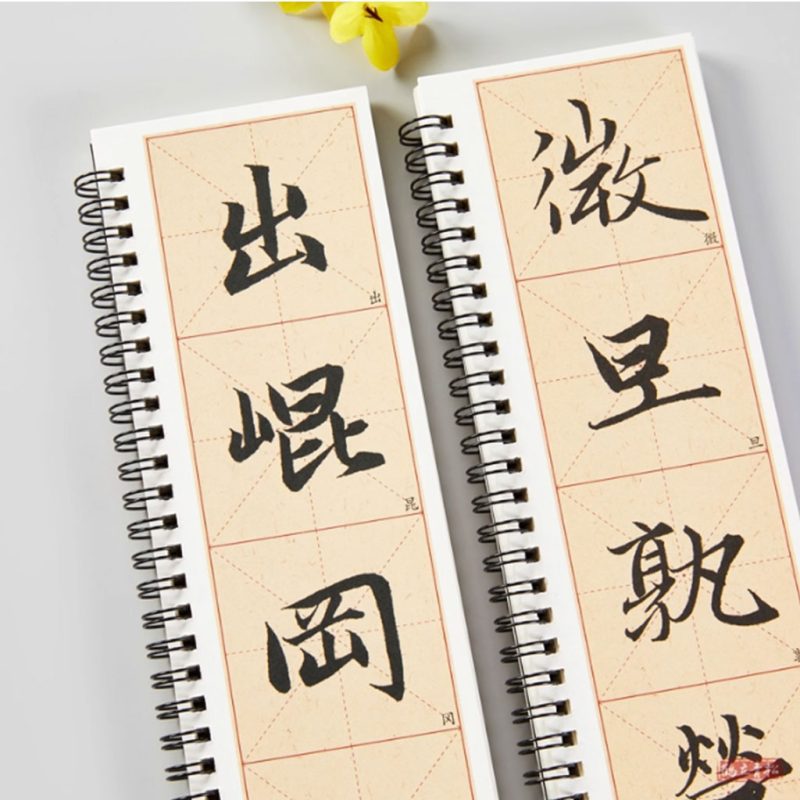 出
出
崐
昆
岡
冈
微
微
旦
旦
孰